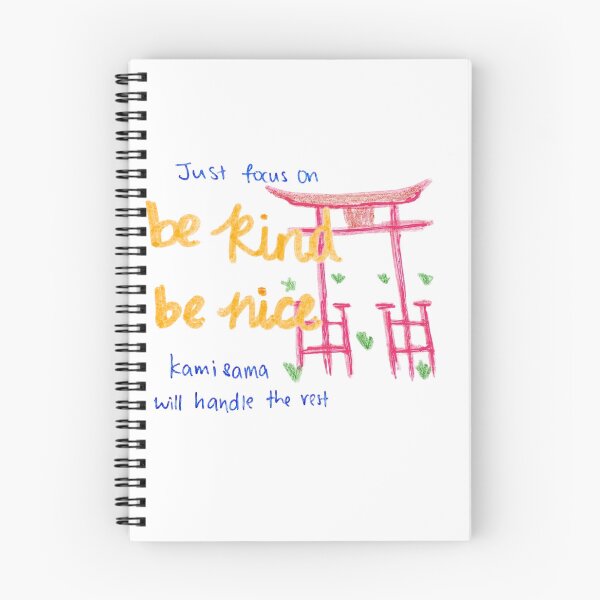 Just focus on
be kind
be nice
kamisama
will handle the rest